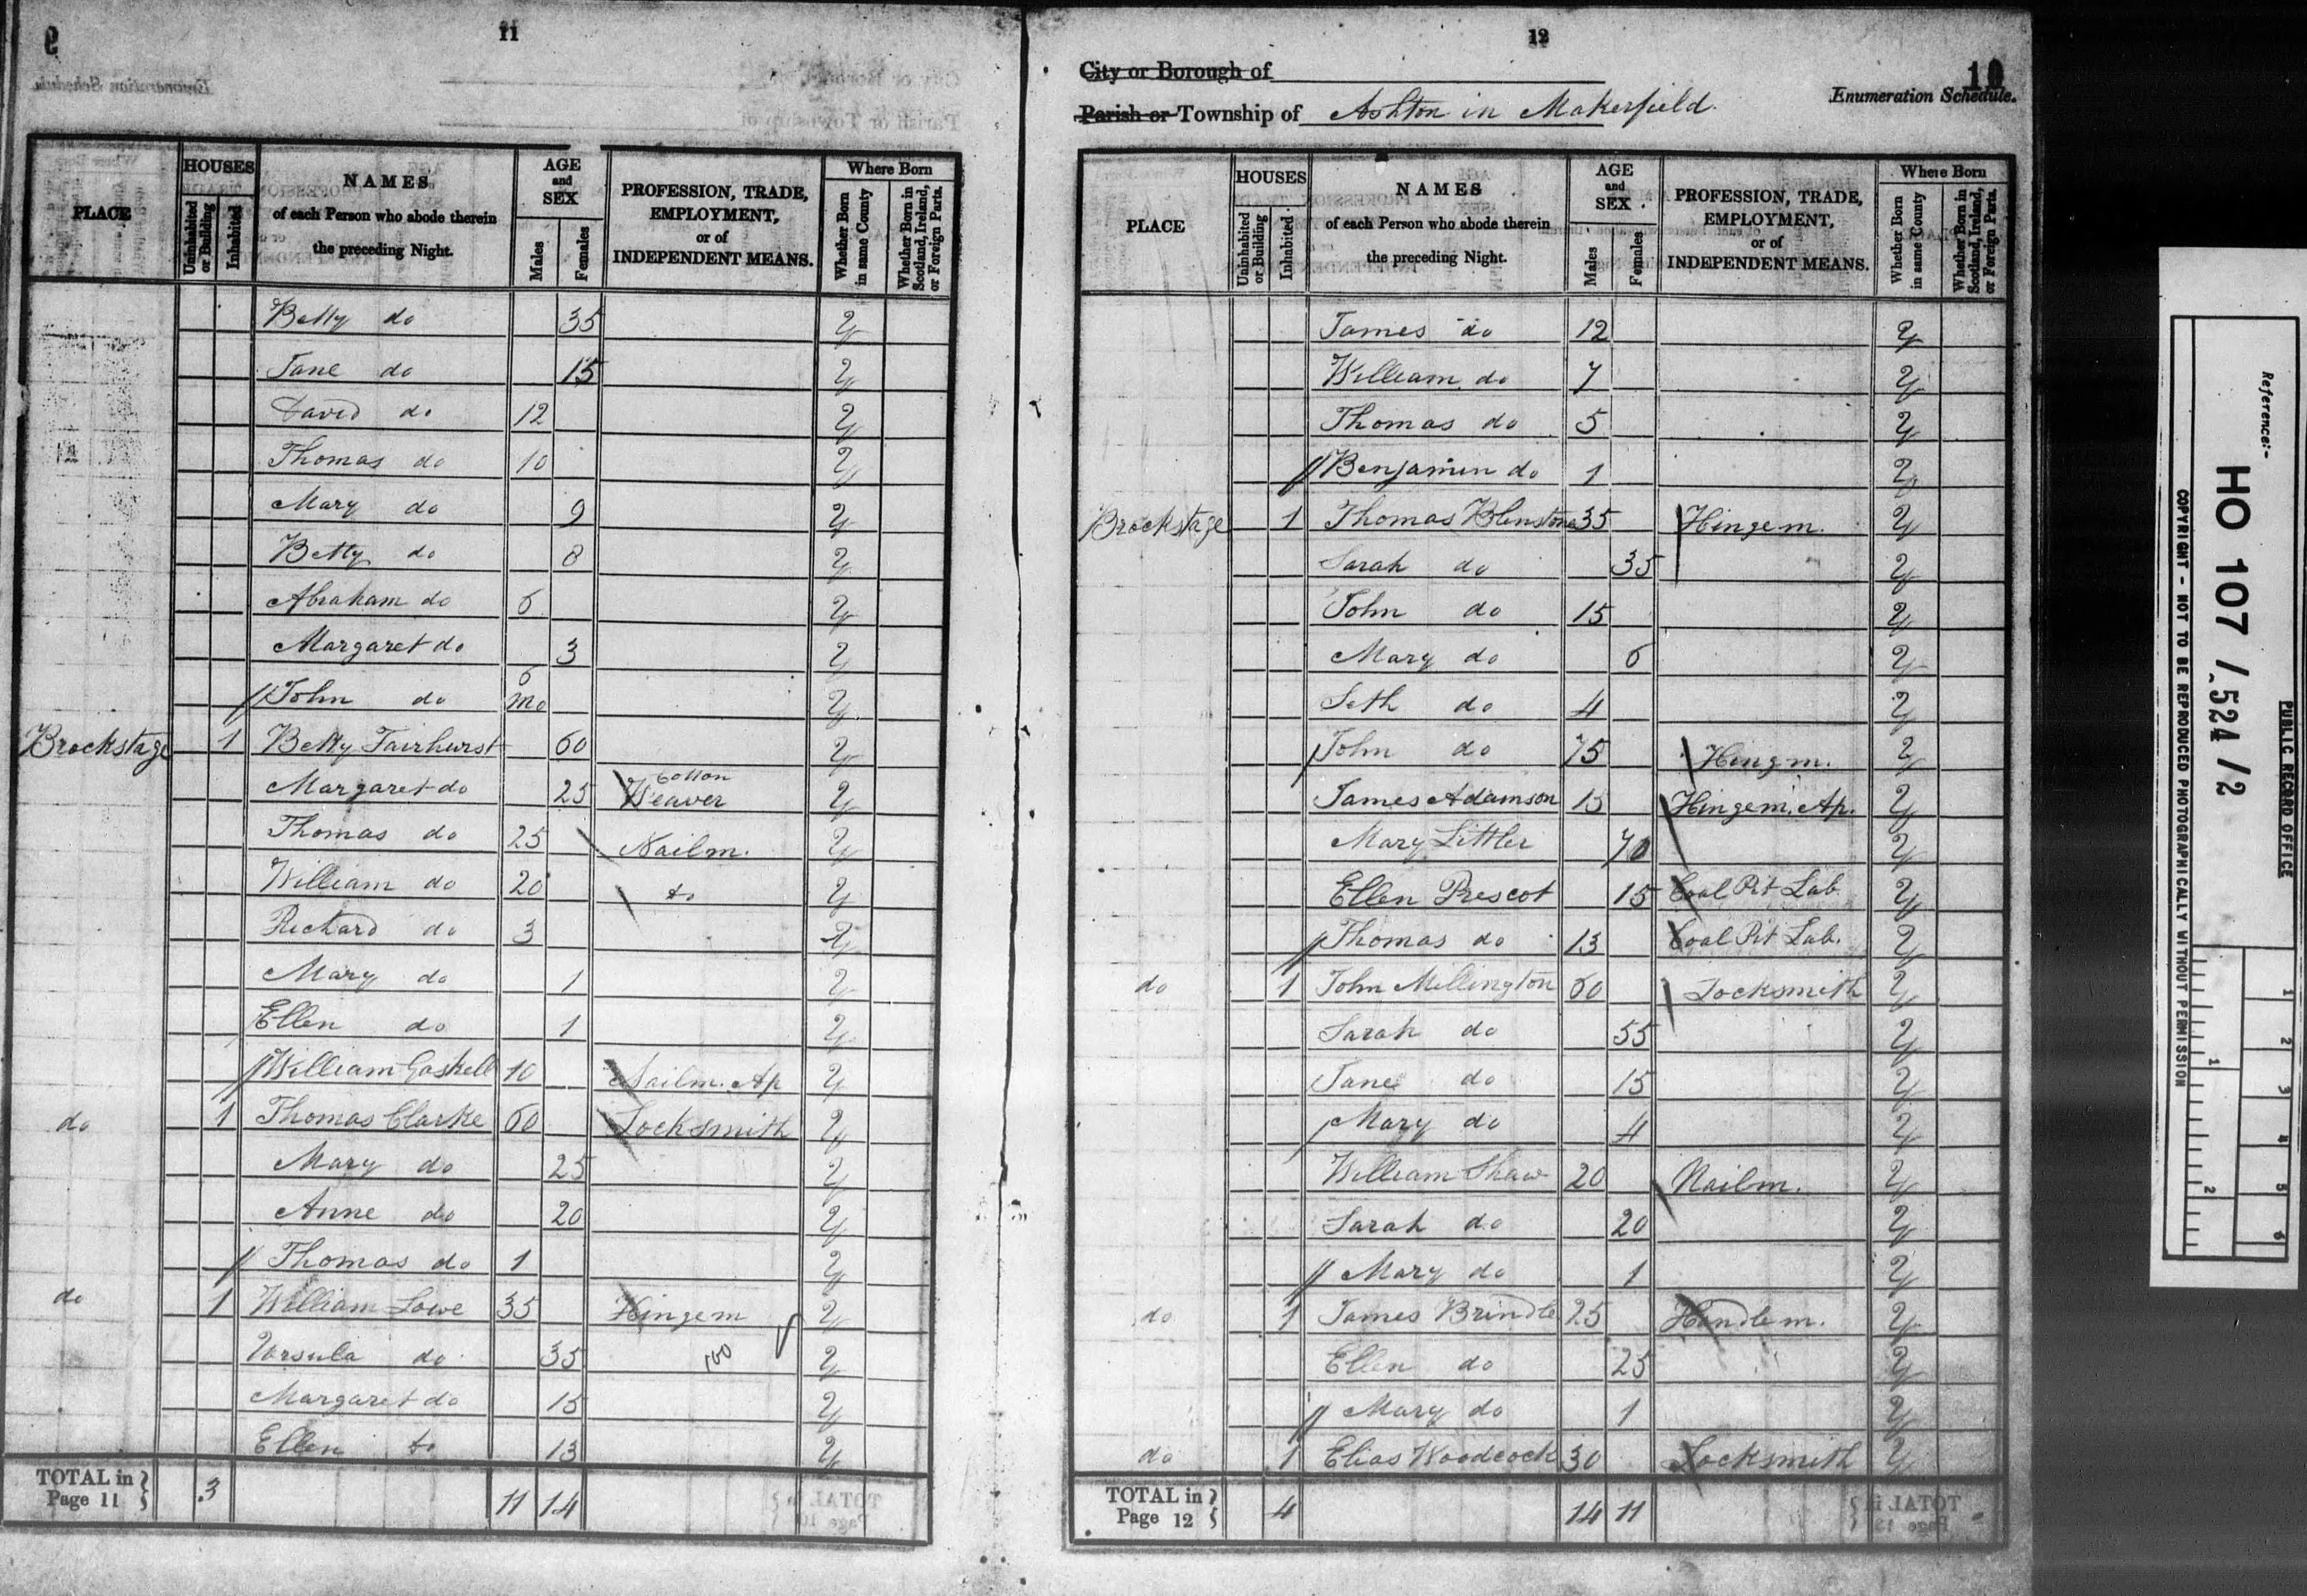 11
PLACE
HOUSES
Uninhabited or Building
Inhabited
NAMES
of each Person who abode therein
the preceding Night.
AGE
and
SEX
Males
Females
PROFESSION, TRADE,
EMPLOYMENT,
or of
INDEPENDENT MEANS.
Where Born
Whether Born in same County
Whether Born in Scotland, Ireland, or Foreign Parts.
Betty do 35 Y
Jane do 15 Y
David do 12 Y
Thomas do 10 Y
Mary do 9 Y
Betty do 8 Y
Abraham do 6 Y
Margaret do 3 Y
John do 6 mo Y
Brockstage 1 Betty Fairhurst 60 Y
Margaret do 25 Cotton Weaver Y
Thomas do 25 Nailm. Y
William do 20 do Y
Richard do 3 Y
Mary do 1 Y
Ellen do 1 Y
William Gaskell 10 Nailm. Ap Y
do 1 Thomas Clarke 60 Locksmith Y
Mary do 25 Y
Anne do 20 Y
Thomas do 1 Y
do 1 William Lowe 35 Hingem Y
Ursula do 35 Y
Margaret do 15 Y
Ellen do 13 Y
TOTAL in Page 11 3 11 14
12
City or Borough of
10
Enumeration Schedule.
Parish or Township of Ashton in Makerfield.
PLACE
HOUSES
Uninhabited or Building
Inhabited
NAMES
of each Person who abode therein
the preceding Night.
AGE
and
SEX
Males
Females
PROFESSION, TRADE,
EMPLOYMENT,
or of
INDEPENDENT MEANS.
Where Born
Whether Born in same County
Whether Born in Scotland, Ireland, or Foreign Parts.
James do 12 Y
William do 7 Y
Thomas do 5 Y
Benjamin do 1 Y
Brockstage 1 Thomas Blinstone 35 Hingem. Y
Sarah do 35 Y
John do 15 Y
Mary do 6 Y
Seth do 4 Y
John do 75 Hingm. Y
James Adamson 15 Hingem. Ap. Y
Mary Littler 70 Y
Ellen Prescot 15 Coal Pit Lab Y
Thomas do 13 Coal Pit Lab. Y
do 1 John Millington 60 Locksmith Y
Sarah do 55 Y
Jane do 15 Y
Mary do 4 Y
William Shaw 20 Nailm. Y
Sarah do 20 Y
Mary do 1 Y
do 1 James Brindle 25 Hindlem. Y
Ellen do 25 Y
Mary do 1 Y
do 1 Elias Woodcock 30 Locksmith Y
TOTAL in Page 12 4 14 11
Reference:-
HO 107 / 524 / 2
PUBLIC RECORD OFFICE
COPYRIGHT - NOT TO BE REPRODUCED PHOTOGRAPHICALLY WITHOUT PERMISSION
1 2 3 4 5 6
1 2